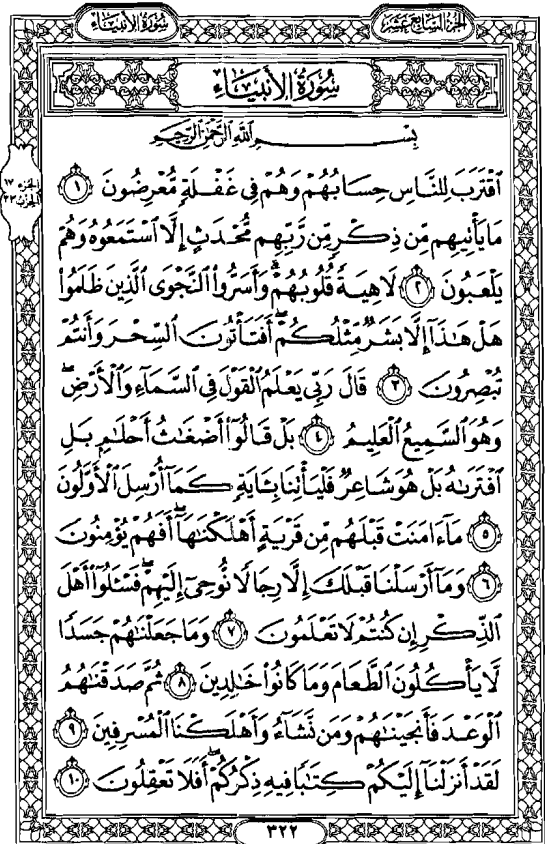 الجزء السابع عشر
سورة الأنبياء
سُورَةُ الأَنبِيَاءِ
بِسْمِ ٱللَّهِ ٱلرَّحْمَٰنِ ٱلرَّحِيمِ
ٱقْتَرَبَ لِلنَّاسِ حِسَابُهُمْ وَهُمْ فِى غَفْلَةٍ مُّعْرِضُونَ ١
مَا يَأْتِيهِم مِّن ذِكْرٍ مِّن رَّبِّهِم مُّحْدَثٍ إِلَّا ٱسْتَمَعُوهُ وَهُمْ
يَلْعَبُونَ ٢ لَاهِيَةً قُلُوبُهُمْ ۗ وَأَسَرُّوا۟ ٱلنَّجْوَى ٱلَّذِينَ ظَلَمُوا۟
هَلْ هَٰذَآ إِلَّا بَشَرٌ مِّثْلُكُمْ ۖ أَفَتَأْتُونَ ٱلسِّحْرَ وَأَنتُمْ
تُبْصِرُونَ ٣ قَالَ رَبِّى يَعْلَمُ ٱلْقَوْلَ فِى ٱلسَّمَآءِ وَٱلْأَرْضِ ۖ
وَهُوَ ٱلسَّمِيعُ ٱلْعَلِيمُ ٤ بَلْ قَالُوٓا۟ أَضْغَٰثُ أَحْلَٰمٍۭ بَلِ
ٱفْتَرَىٰهُ بَلْ هُوَ شَاعِرٌ فَلْيَأْتِنَا بِـَٔايَةٍ كَمَآ أُرْسِلَ ٱلْأَوَّلُونَ
٥ مَآ ءَامَنَتْ قَبْلَهُم مِّن قَرْيَةٍ أَهْلَكْنَٰهَآ ۖ أَفَهُمْ يُؤْمِنُونَ
٦ وَمَآ أَرْسَلْنَا قَبْلَكَ إِلَّا رِجَالًا نُّوحِىٓ إِلَيْهِمْ ۖ فَسْـَٔلُوٓا۟ أَهْلَ
ٱلذِّكْرِ إِن كُنتُمْ لَا تَعْلَمُونَ ٧ وَمَا جَعَلْنَٰهُمْ جَسَدًا
لَّا يَأْكُلُونَ ٱلطَّعَامَ وَمَا كَانُوا۟ خَٰلِدِينَ ٨ ثُمَّ صَدَقْنَٰهُمُ
ٱلْوَعْدَ فَأَنجَيْنَٰهُمْ وَمَن نَّشَآءُ وَأَهْلَكْنَا ٱلْمُسْرِفِينَ ٩
لَقَدْ أَنزَلْنَآ إِلَيْكُمْ كِتَٰبًا فِيهِ ذِكْرُكُمْ ۖ أَفَلَا تَعْقِلُونَ ١٠
الجزء ١٧
الحزب ٣٣
٣٢٢